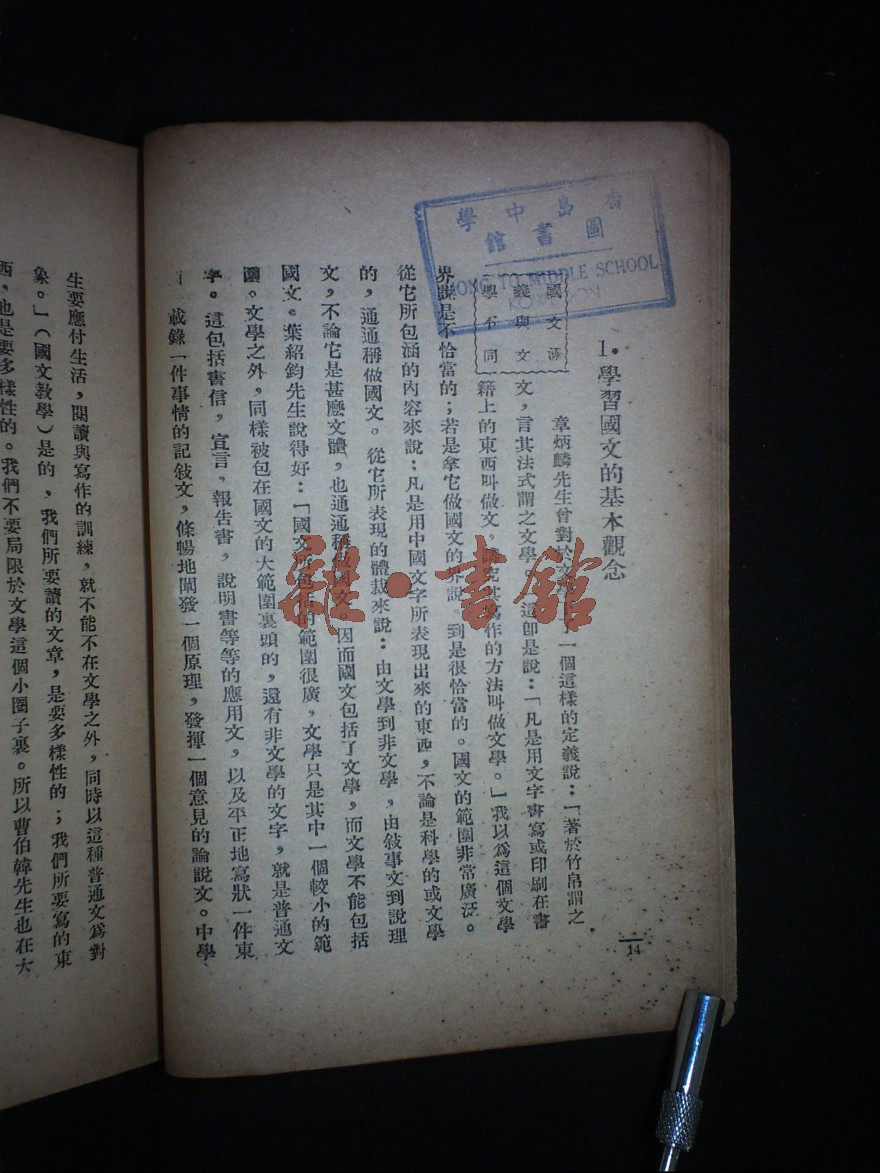 香島中學
圖書館
MIDDLE SCHOOL
1.學習國文的基本觀念
國文涵
義與文
學不同
章炳麟先生曾對於文學
了一個這樣的定義說：「著於竹帛謂之
文，言其法式謂之文學
這卽是說：「凡是用文字書寫或印刷在書
籍上的東西叫做文，
其寫作的方法叫做文學。」我以爲這個文學
界說是不恰當的；若是拿它做國文的界說
到是很恰當的。國文的範圍非常廣泛。
從它所包涵的內容來說：凡是用中國文字所表現出來的東西，不論是科學的或文學
的，通通稱做國文。從它所表現的體裁來說：由文學到非文學，由敍事文到說理
文，不論它是甚麽文體，也通通稱做國文。因而國文包括了文學，而文學不能包括
國文。葉紹鈞先生說得好：「國文所包括的範圍很廣，文學只是其中一個較小的範
圍。文學之外，同樣被包在國文的大範圍裏頭的，還有非文學的文字，就是普通文
字。這包括書信，宣言，報吿書，說明書等等的應用文，以及平正地寫狀一件東
載錄一件事情的記敍文，條暢地闡發一個原理，發揮一個意見的論說文。中學
14
生要應付生活，閱讀與寫作的訓練，就不能不在文學之外，同時以這種普通文爲對
象。」（國文教學）是的，我們所要讀的文章，是要多樣性的；我們所要寫的東
西，也是要多樣性的。我們不要局限於文學這個小圈子裏。所以曹伯韓先生也在大
雜·書館